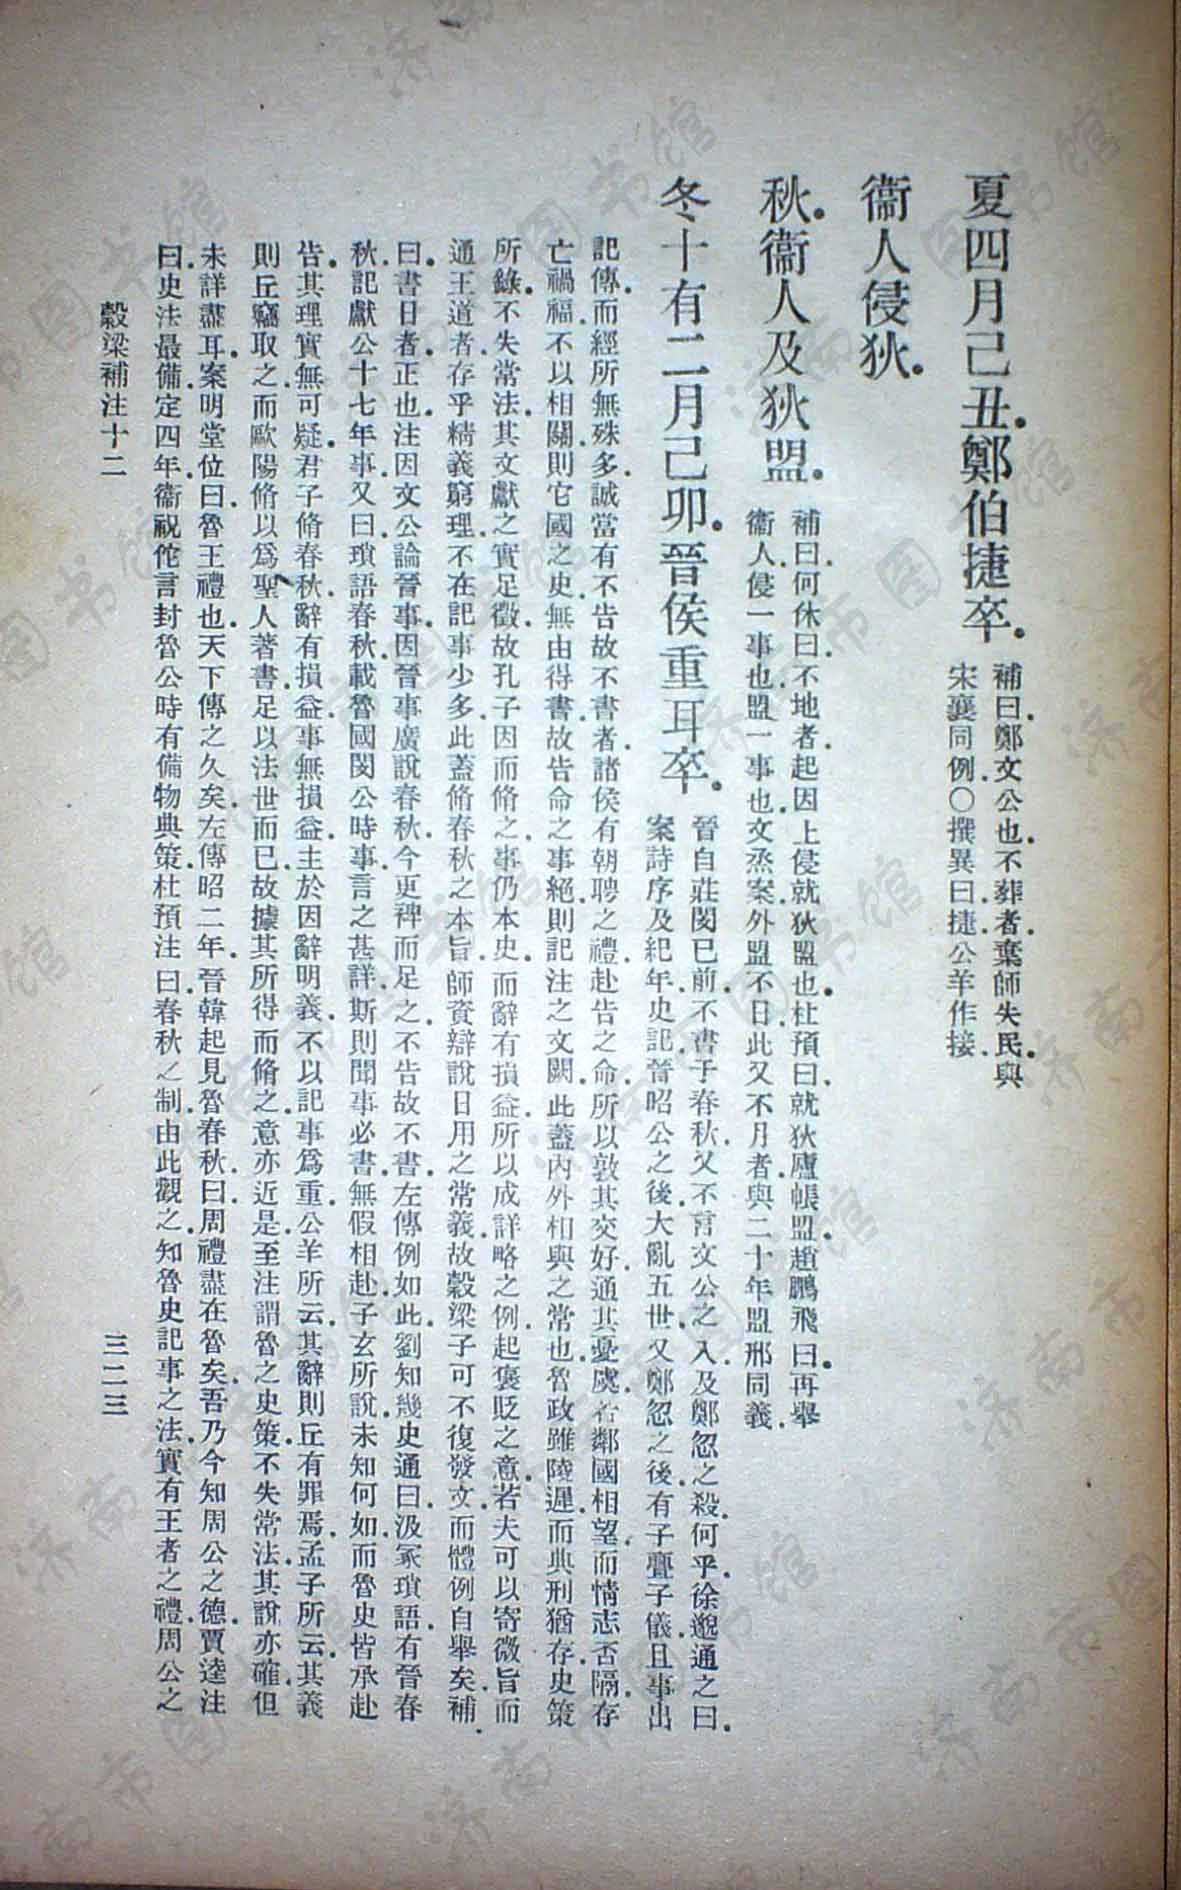 夏四月己丑.鄭伯捷卒.
補曰.鄭文公也.不葬者.棄師失民.與
宋襄同例.〇撰異曰.捷.公羊作接.
衞人侵狄.
秋.衞人及狄盟.
補曰.何休曰.不地者.起因上侵就狄盟也.杜預曰.就狄廬帳盟.趙鵬飛曰.再舉
衞人.侵一事也.盟一事也.文烝案.外盟不日.此又不月者.與二十年盟邢同義.
冬十有二月己卯.晉侯重耳卒.
晉自莊閔已前.不書于春秋.又不言文公之入及鄭忽之殺.何乎.徐邈通之曰.
案詩序及紀年.史記.晉昭公之後.大亂五世.又鄭忽之後.有子亹子儀.且事出
記傳.而經所無殊多.誠當有不告故不書者.諸侯有朝聘之禮.赴告之命.所以敦其交好.通其憂虞.若鄰國相望.而情志否隔.存
亡禍福.不以相關.則它國之史.無由得書.故告命之事絕.則記注之文闕.此蓋內外相與之常也.魯政雖陵遲.而典刑猶存.史策
所錄.不失常法.其文獻之實足徵.故孔子因而脩之.事仍本史.而辭有損益.所以成詳略之例.起褒貶之意.若夫可以寄微旨而
通王道者.存乎精義窮理.不在記事少多.此蓋脩春秋之本旨.師資辯說.日用之常義.故穀梁子可不復發文.而體例自舉矣.補
曰.書日者.正也.注因文公論晉事.因晉事廣說春秋.今更裨而足之.不告故不書.左傳例如此.劉知幾史通曰.汲冢瑣語.有晉春
秋.記獻公十七年事.又曰.瑣語春秋.載魯國閔公時事.言之甚詳.斯則聞事必書.無假相赴.子玄所說.未知何如.而魯史皆承赴
告.其理實無可疑.君子脩春秋.辭有損益.事無損益.主於因辭明義.不以記事爲重.公羊所云.其辭則丘有罪焉.孟子所云.其義
則丘竊取之.而歐陽脩以爲聖人著書.足以法世而已.故據其所得而脩之.意亦近是.至注謂魯之史策.不失常法.其說亦確.但
未詳盡耳.案明堂位曰.魯王禮也.天下傳之久矣.左傳昭二年.晉韓起見魯春秋.曰.周禮盡在魯矣.吾乃今知周公之德.賈逵注
曰.史法最備.定四年.衞祝佗言封魯公時.有備物典策.杜預注曰.春秋之制.由此觀之.知魯史記事之法.實有王者之禮.周公之
穀梁補注十二
三二三
济南市图书馆